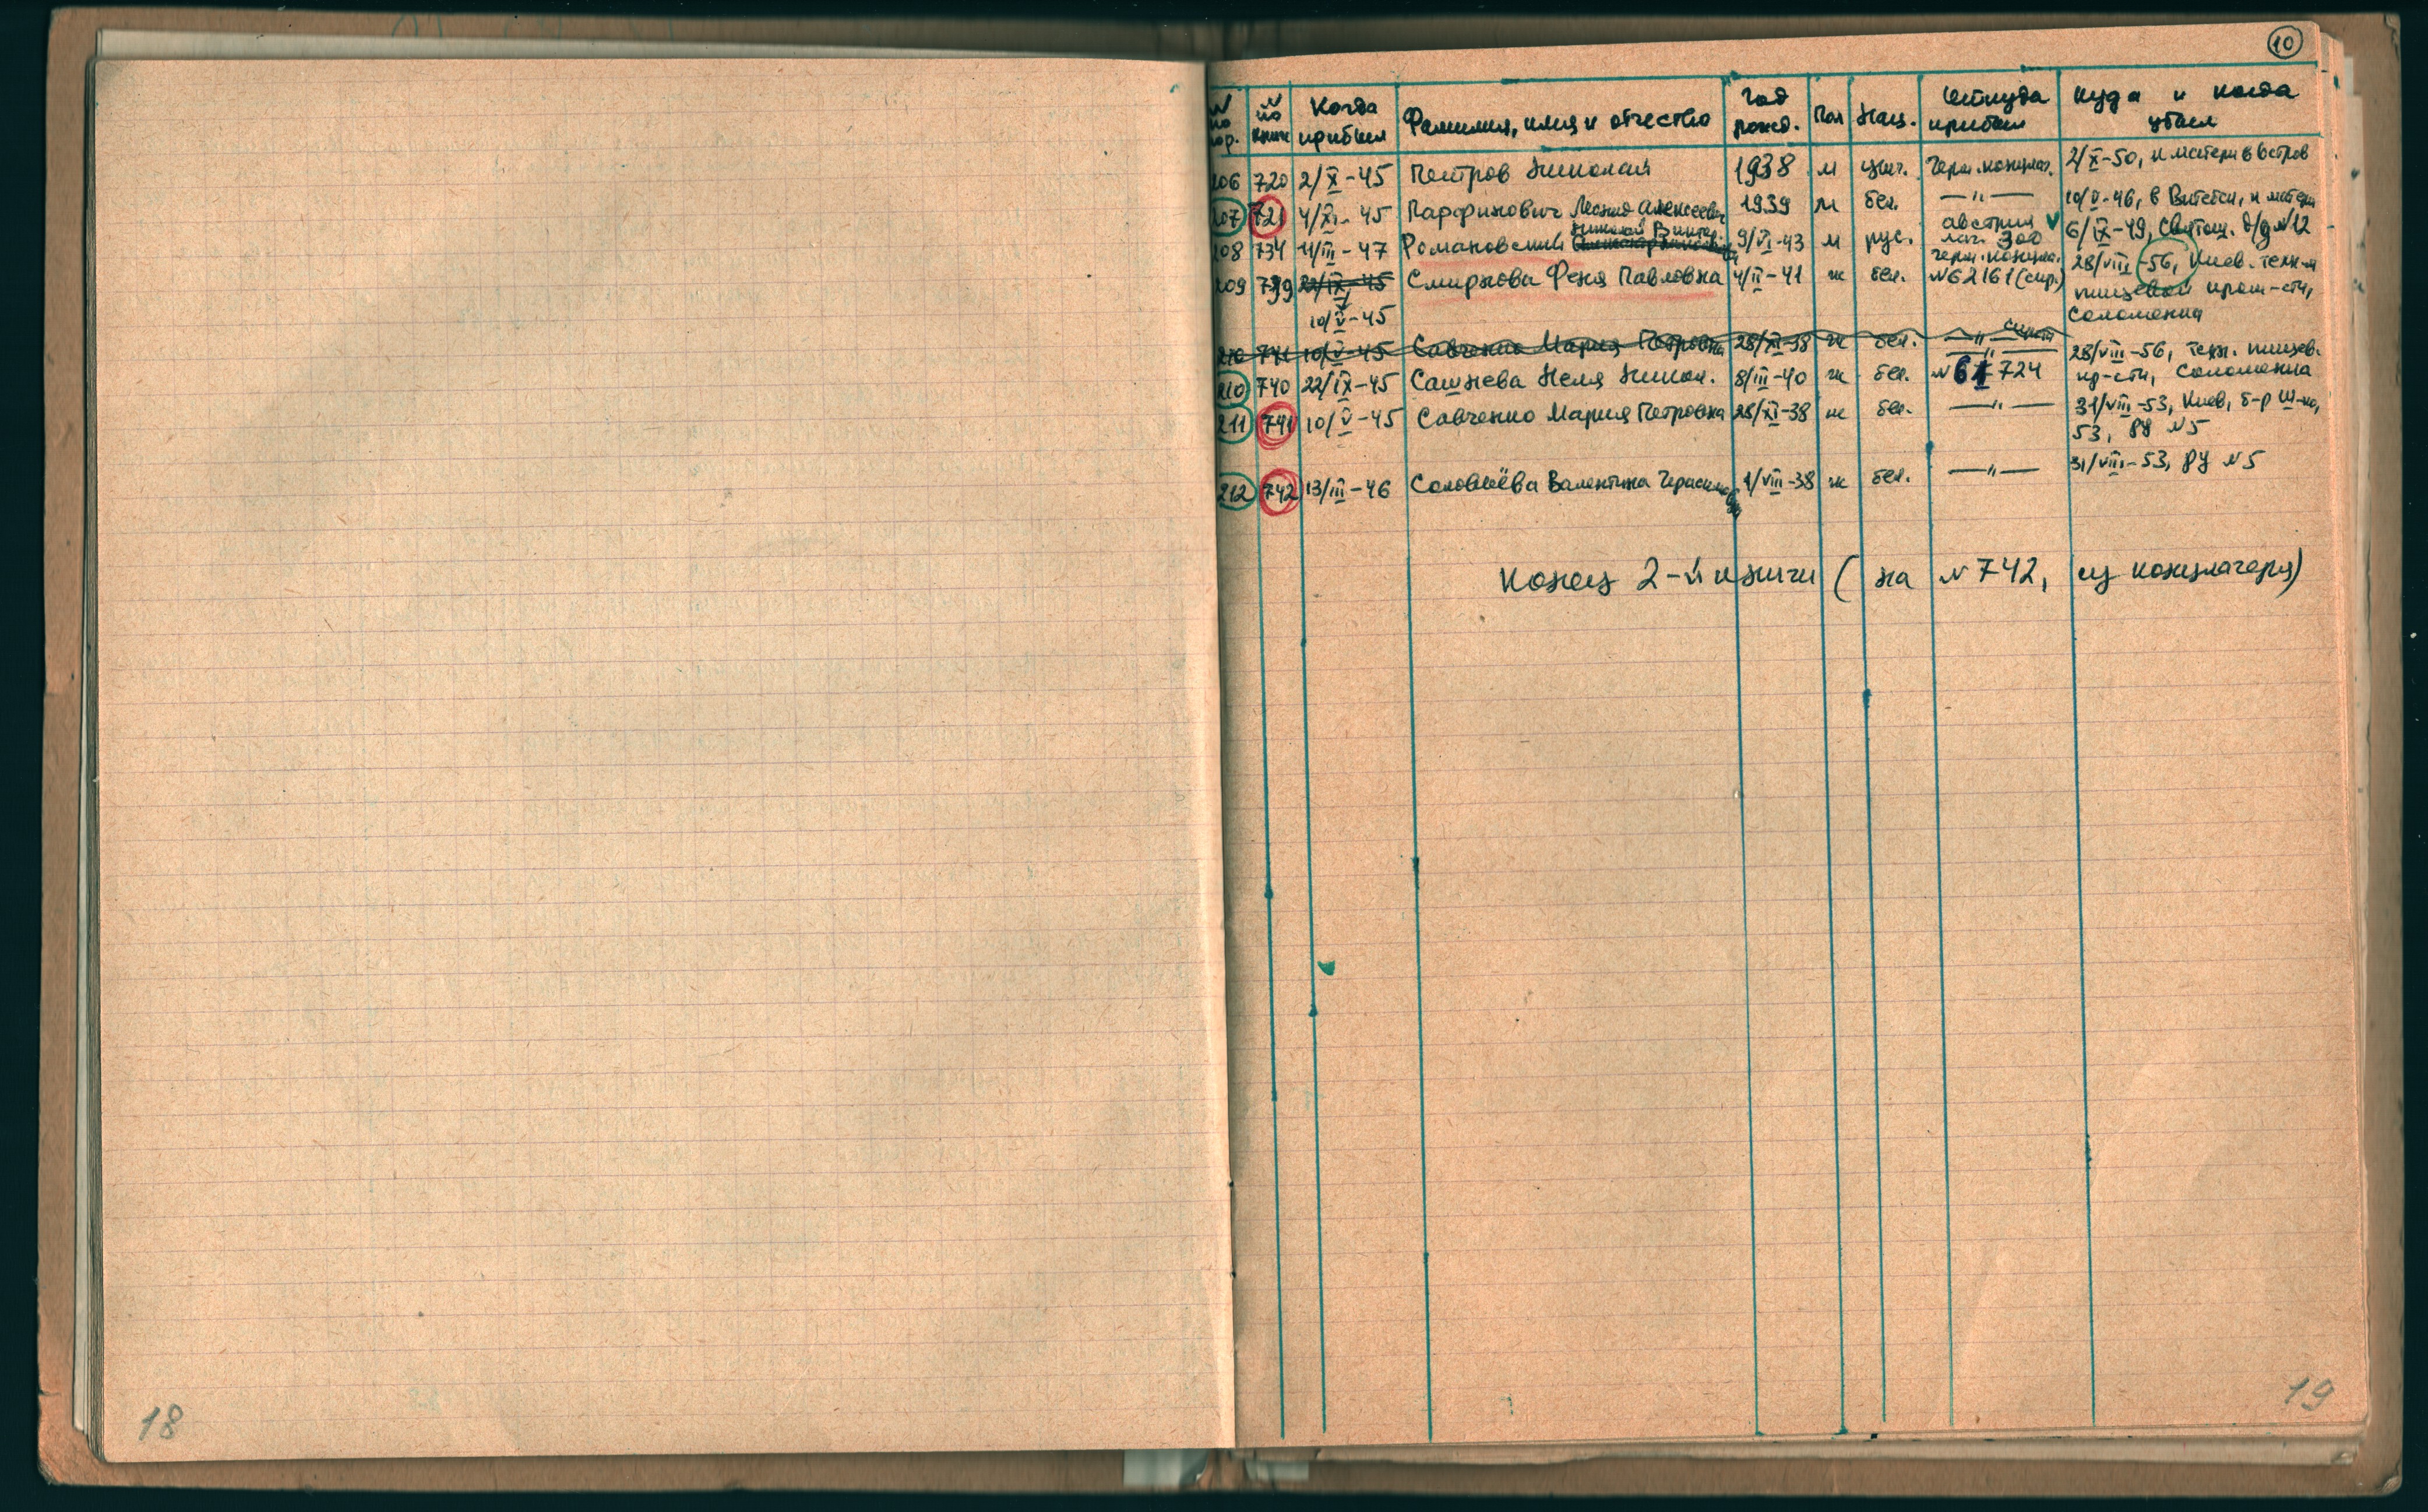 10
№ по пор.
№ по книге
Когда прибыл
Фамилия, имя и отчество
Год рожд.
Пол
Нац.
Откуда прибыл
Куда и когда убыл
206 720 2/X-45 Петров Николай 1938 м цыг. Герм. концлаг. 2/X-50, к матери в Остров
207 721 4/XI-45 Парфинович Леонид Алексеевич 1939 м бел. —"— 10/V-46, в Витебск, к матери
208 734 11/III-47 Романовский Николай Виктор. 9/VI-43 м рус. Австрия лаг. 300 6/IX-49, Святош. д/д №12
209 739 22/IX-45 Смирнова Феня Павловна 4/II-41 ж бел. герм. концла. №62161 (сир.) 28/VIII-56, Киев. техн-м
10/V-45 пищевой пром-сти,
Соломенка
210 741 10/V-45 Савченко Мария Петровна 28/XI-38 ж бел. —"—
210 740 22/IX-45 Сашнева Неля Никол. 8/III-40 ж бел. —"— №61724 28/VIII-56, техн. пищев.
пр-сти, Соломенка
211 741 10/V-45 Савченко Мария Петровна 28/XI-38 ж бел. —"— 31/VIII-53, Киев, б-р Ш-ко,
53, РУ №5
212 742 13/III-46 Соловьёва Валентина 1/VIII-38 ж бел. —"— 31/VIII-53, РУ №5
Конец 2-й книги (на №742, из концлагеря)
18
19